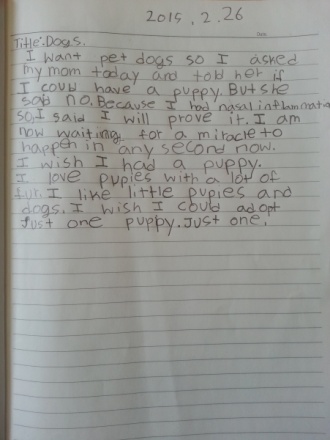 2015, 2. 26
Date
Title: Dogs.
I want pet dogs so I asked
my mom today and told her if
I coud have a puppy. But she
said no. Because I had nasal inflammatio
so, I said I will prove it. I am
now waiting for a miracle to
happen in any second now.
I wish I had a puppy.
I love pupies with a lot of
fur. I like little pupies and
dogs. I wish I could adopt
Just one puppy. Just one.